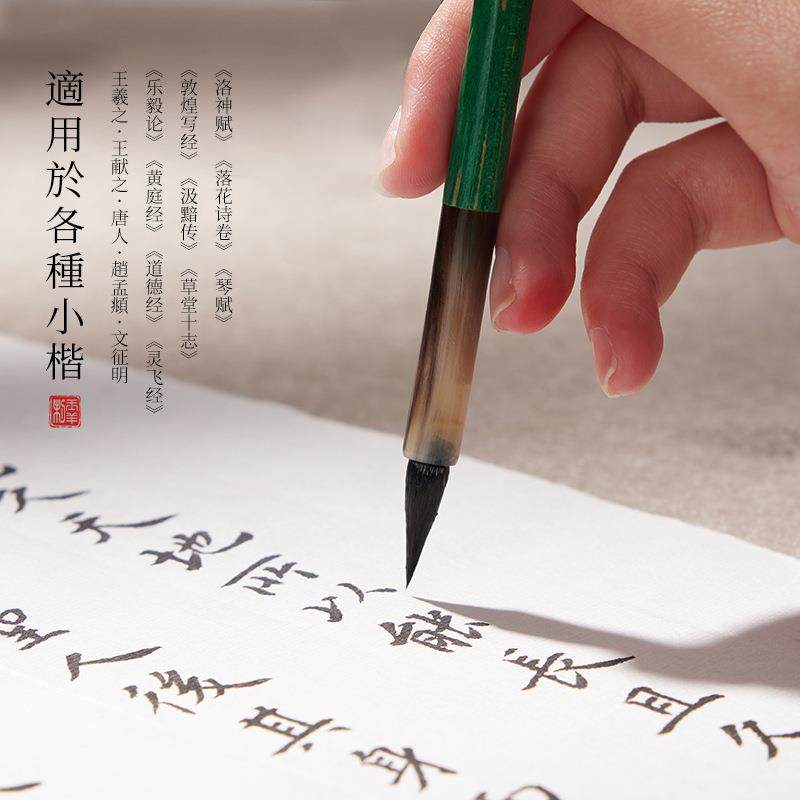 適用於各種小楷
王羲之·王献之·唐人·趙孟頫·文征明
《乐毅论》《黄庭经》《道德经》《灵飞经》
《敦煌写经》《汲黯传》《草堂十志》
《洛神赋》《落花诗卷》《琴赋》
久天地所以能長且久
聖人後其身